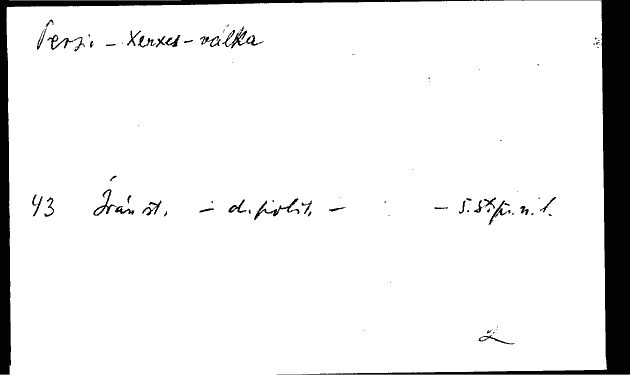 Persie - Xerxes - válka
43 Írán st. - d. polit. - - 5. st. př. n. l.